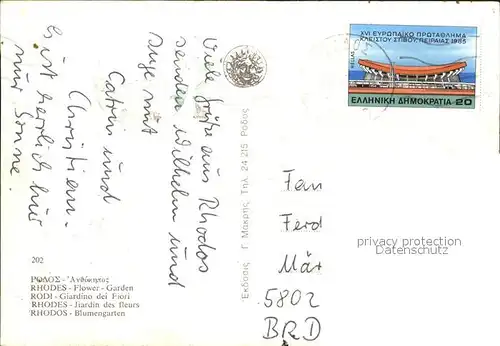 XVI ΕΥΡΩΠΑΪΚΟ ΠΡΩΤΑΘΛΗΜΑ
ΚΛΕΙΣΤΟΥ ΣΤΙΒΟΥ, ΠΕΙΡΑΙΑΣ 1985
HELLAS
ΕΛΛΗΝΙΚΗ ΔΗΜΟΚΡΑΤΙΑ 20
Viele Grüße aus Rhodos
senden Wilhelm und
Inge mit
Catrin und
Christian.
Es ist herrlich hier
nur Sonne.
Fam
Ferd
Mär
5802
BRD
privacy protection
www.oldthing.de
Εκδοσις Γ. Μακρης Τηλ. 24 215 Ρόδος
202
ΡΟΔΟΣ - Ἀνθόκηπος
RHODES - Flower - Garden
RODI - Giardino dei Fiori
RHODES - Jiardin des fleurs
RHODOS - Blumengarten